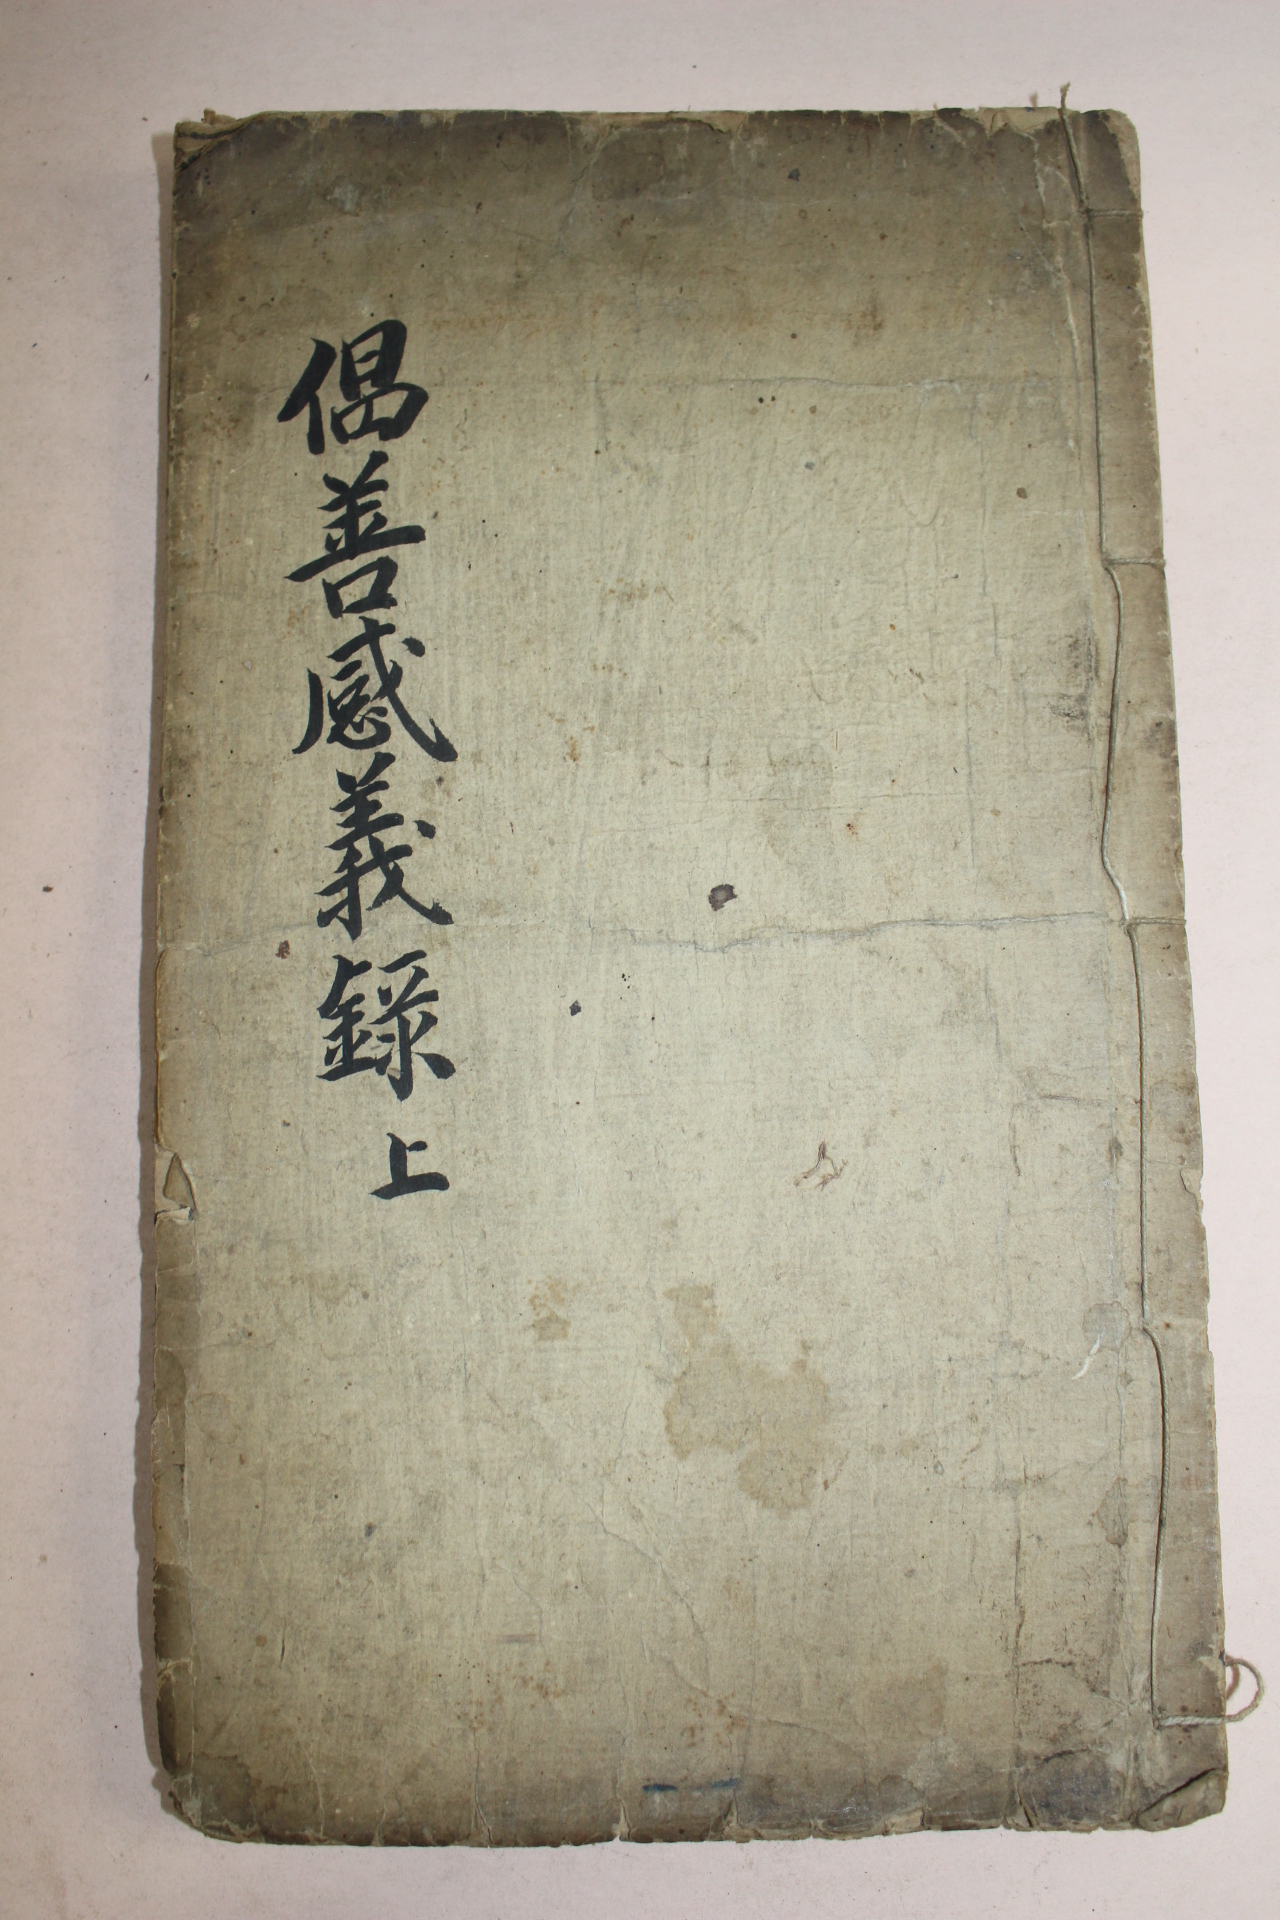 倡善感義錄 上